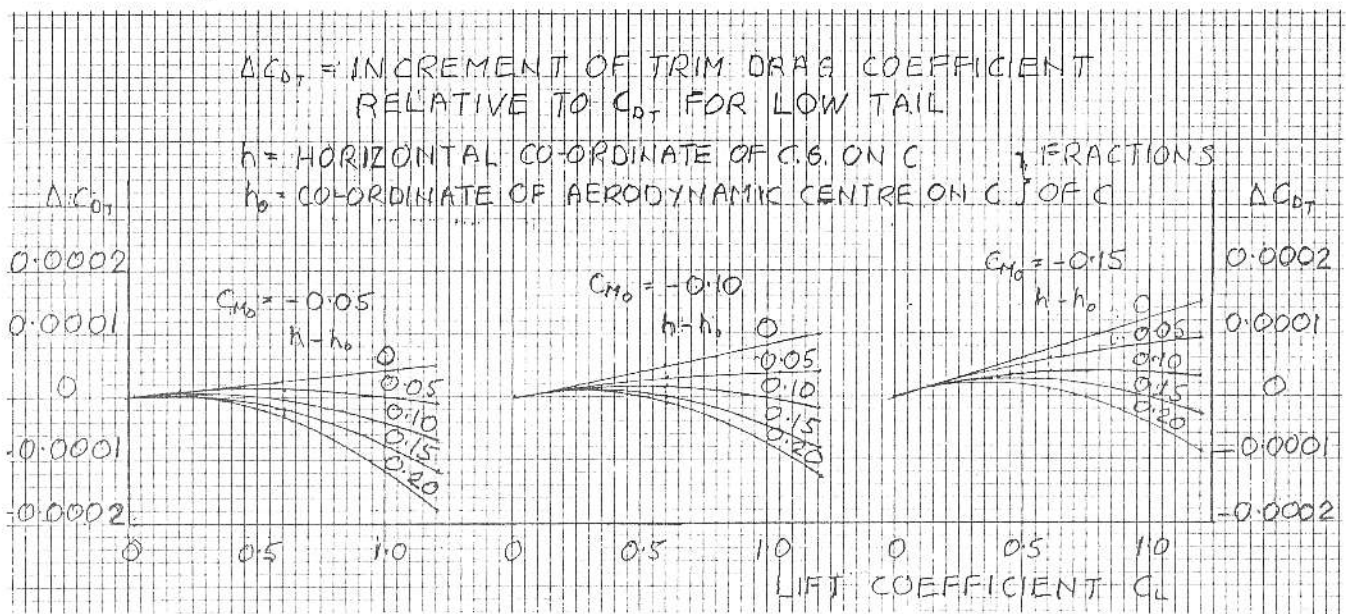 ΔC_DT = INCREMENT OF TRIM DRAG COEFFICIENT
RELATIVE TO C_DT FOR LOW TAIL
h = HORIZONTAL CO-ORDINATE OF C.G. ON C } FRACTIONS
h₀ = CO-ORDINATE OF AERODYNAMIC CENTRE ON C } OF C
ΔC_DT
0.0002
0.0001
0
-0.0001
-0.0002
C_M₀ = -0.05
h-h₀
0
0.05
0.10
0.15
0.20
C_M₀ = -0.10
h-h₀
0
0.05
0.10
0.15
0.20
C_M₀ = -0.15
h-h₀
0
0.05
0.10
0.15
0.20
ΔC_DT
0.0002
0.0001
0
-0.0001
-0.0002
0 0.5 1.0 0 0.5 1.0 0 0.5 1.0
LIFT COEFFICIENT C_L